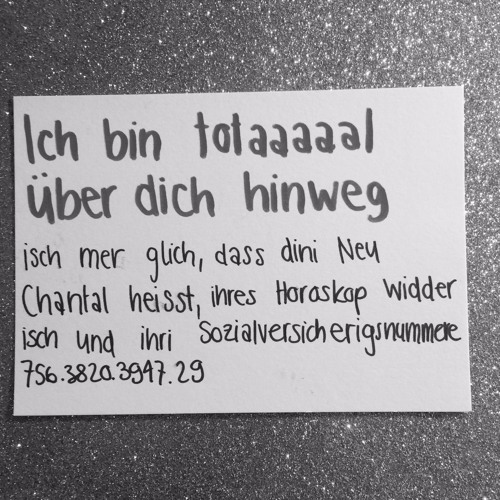 Ich bin totaaaaal
über dich hinweg
isch mer glich, dass dini Neu
Chantal heisst, ihres Horoskop Widder
isch und ihri Sozialversicherigsnummere
756.3820.3947.29